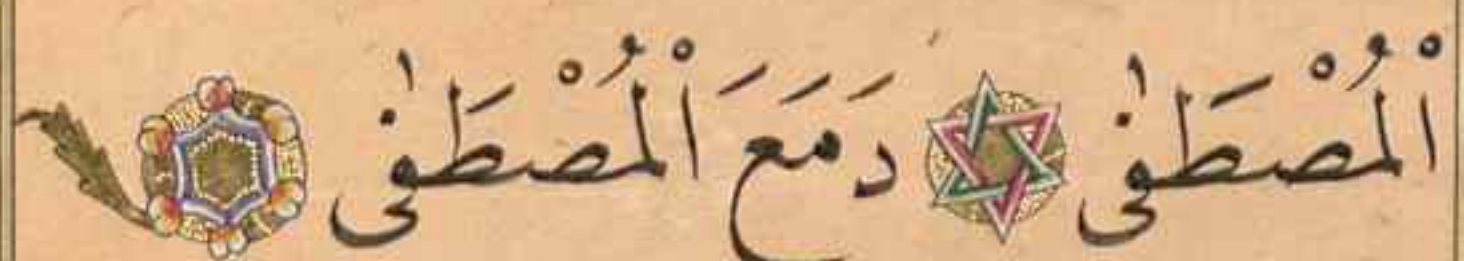 اْلمُصْطَفٰى دَمَعَ اْلمُصْطَفٰى